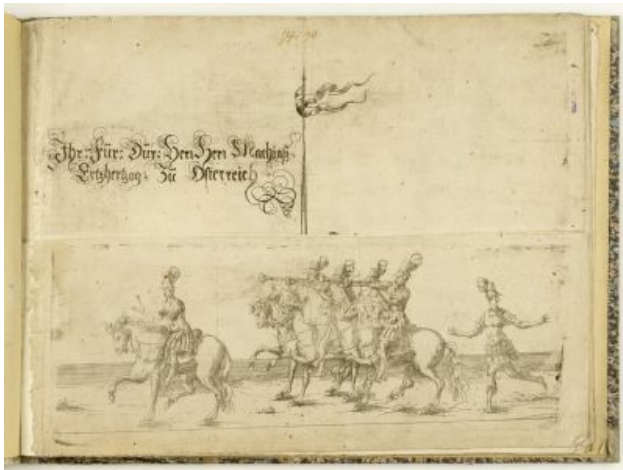 Ihr: Für: Dür: Herr Herr Mathias
Ertzhertzog: Zu Osterreich